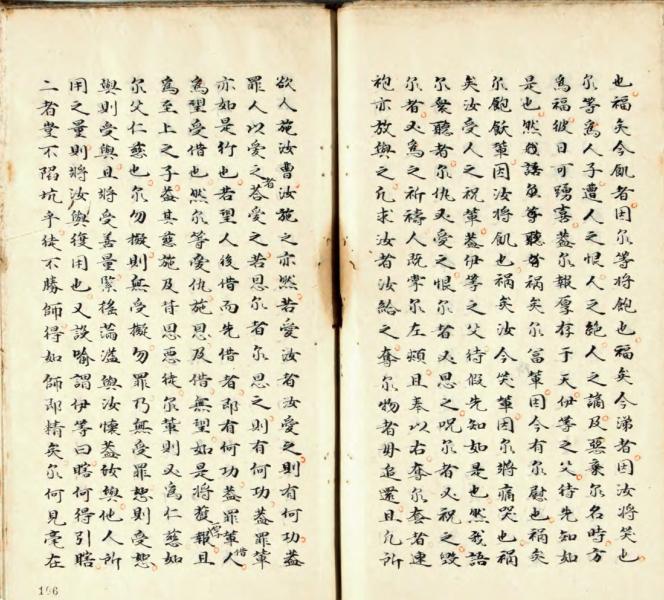 也福矣今飢者因尔等将飽也福矣今涕者因汝将笑也
尔等爲人子遭人之恨人之絶人之謫及惡棄尔名時方
爲福彼日可踴喜葢尔報厚存于天伊等之父待先知如
是也然我語負等聽啓禍矣尔富軰因今有尔慰也禍矣
尔飽飫軰因汝将飢也禍矣汝今笑軰因尔将痛哭也禍
矣汝受人之祝軰葢伊等之父待假先知如是也然我語
尔衆聽者尔仇又愛之恨尔者又恩之呪尔者又祝之毀
尔者又爲之祈禱人既掌尔左頰且奉以右奪尔套者連
袍亦放與之凢求汝者汝給之奪尔物者毋追還且凢所
欲人施汝曹汝施之亦然若愛汝者汝愛之則有何功葢
罪人以愛之者荅愛之若恩尔者尔恩之則有何功葢罪軰
亦如是行也若望人後借而先借者即有何功葢罪軰人借
爲望受借也然尔等愛仇施恩及借無望如是将獲報且
爲至上之子葢其慈施及背恩惡徒尔軰則又爲仁慈如
尔父仁慈也尔勿擬則無受擬勿罪乃無受罪恕則受恕
與則受與且将受善量緊搖滿溢與汝懷葢放與他人所
用之量則将汝與復用也又設喻謂伊等曰瞎何得引瞎
二者豈不陷坑乎徒不勝師得如師即精矣尔何見毫在
196